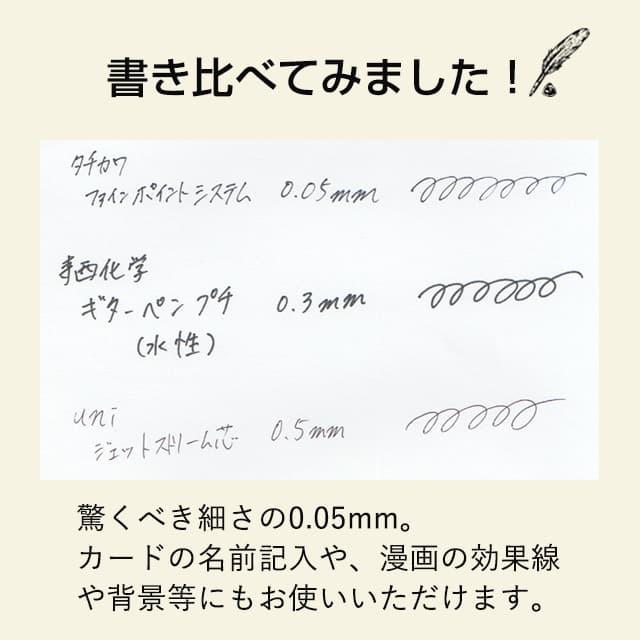 書き比べてみました！
タチカワ
ファインポイントシステム 0.05mm
寺西化学
ギターペンプチ 0.3mm
(水性)
uni
ジェットストリーム芯 0.5mm
驚くべき細さの0.05mm。
カードの名前記入や、漫画の効果線
や背景等にもお使いいただけます。